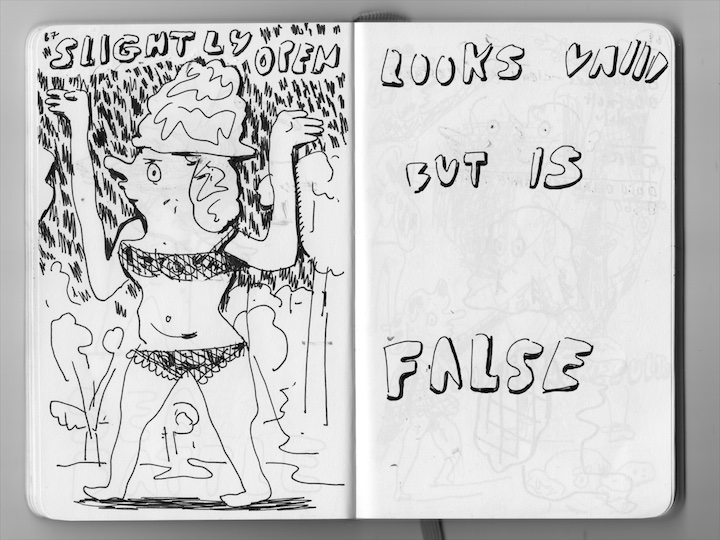 67
SLIGHTLY OPEN
LOOKS VALID
BUT IS
FALSE